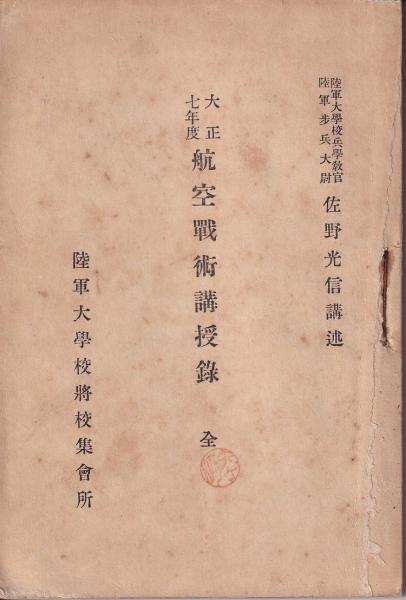 陸軍大學校兵學教官
陸軍步兵大尉
佐野光信講述
大正
七年度
航空戰術講授錄
全
陸軍大學校將校集會所